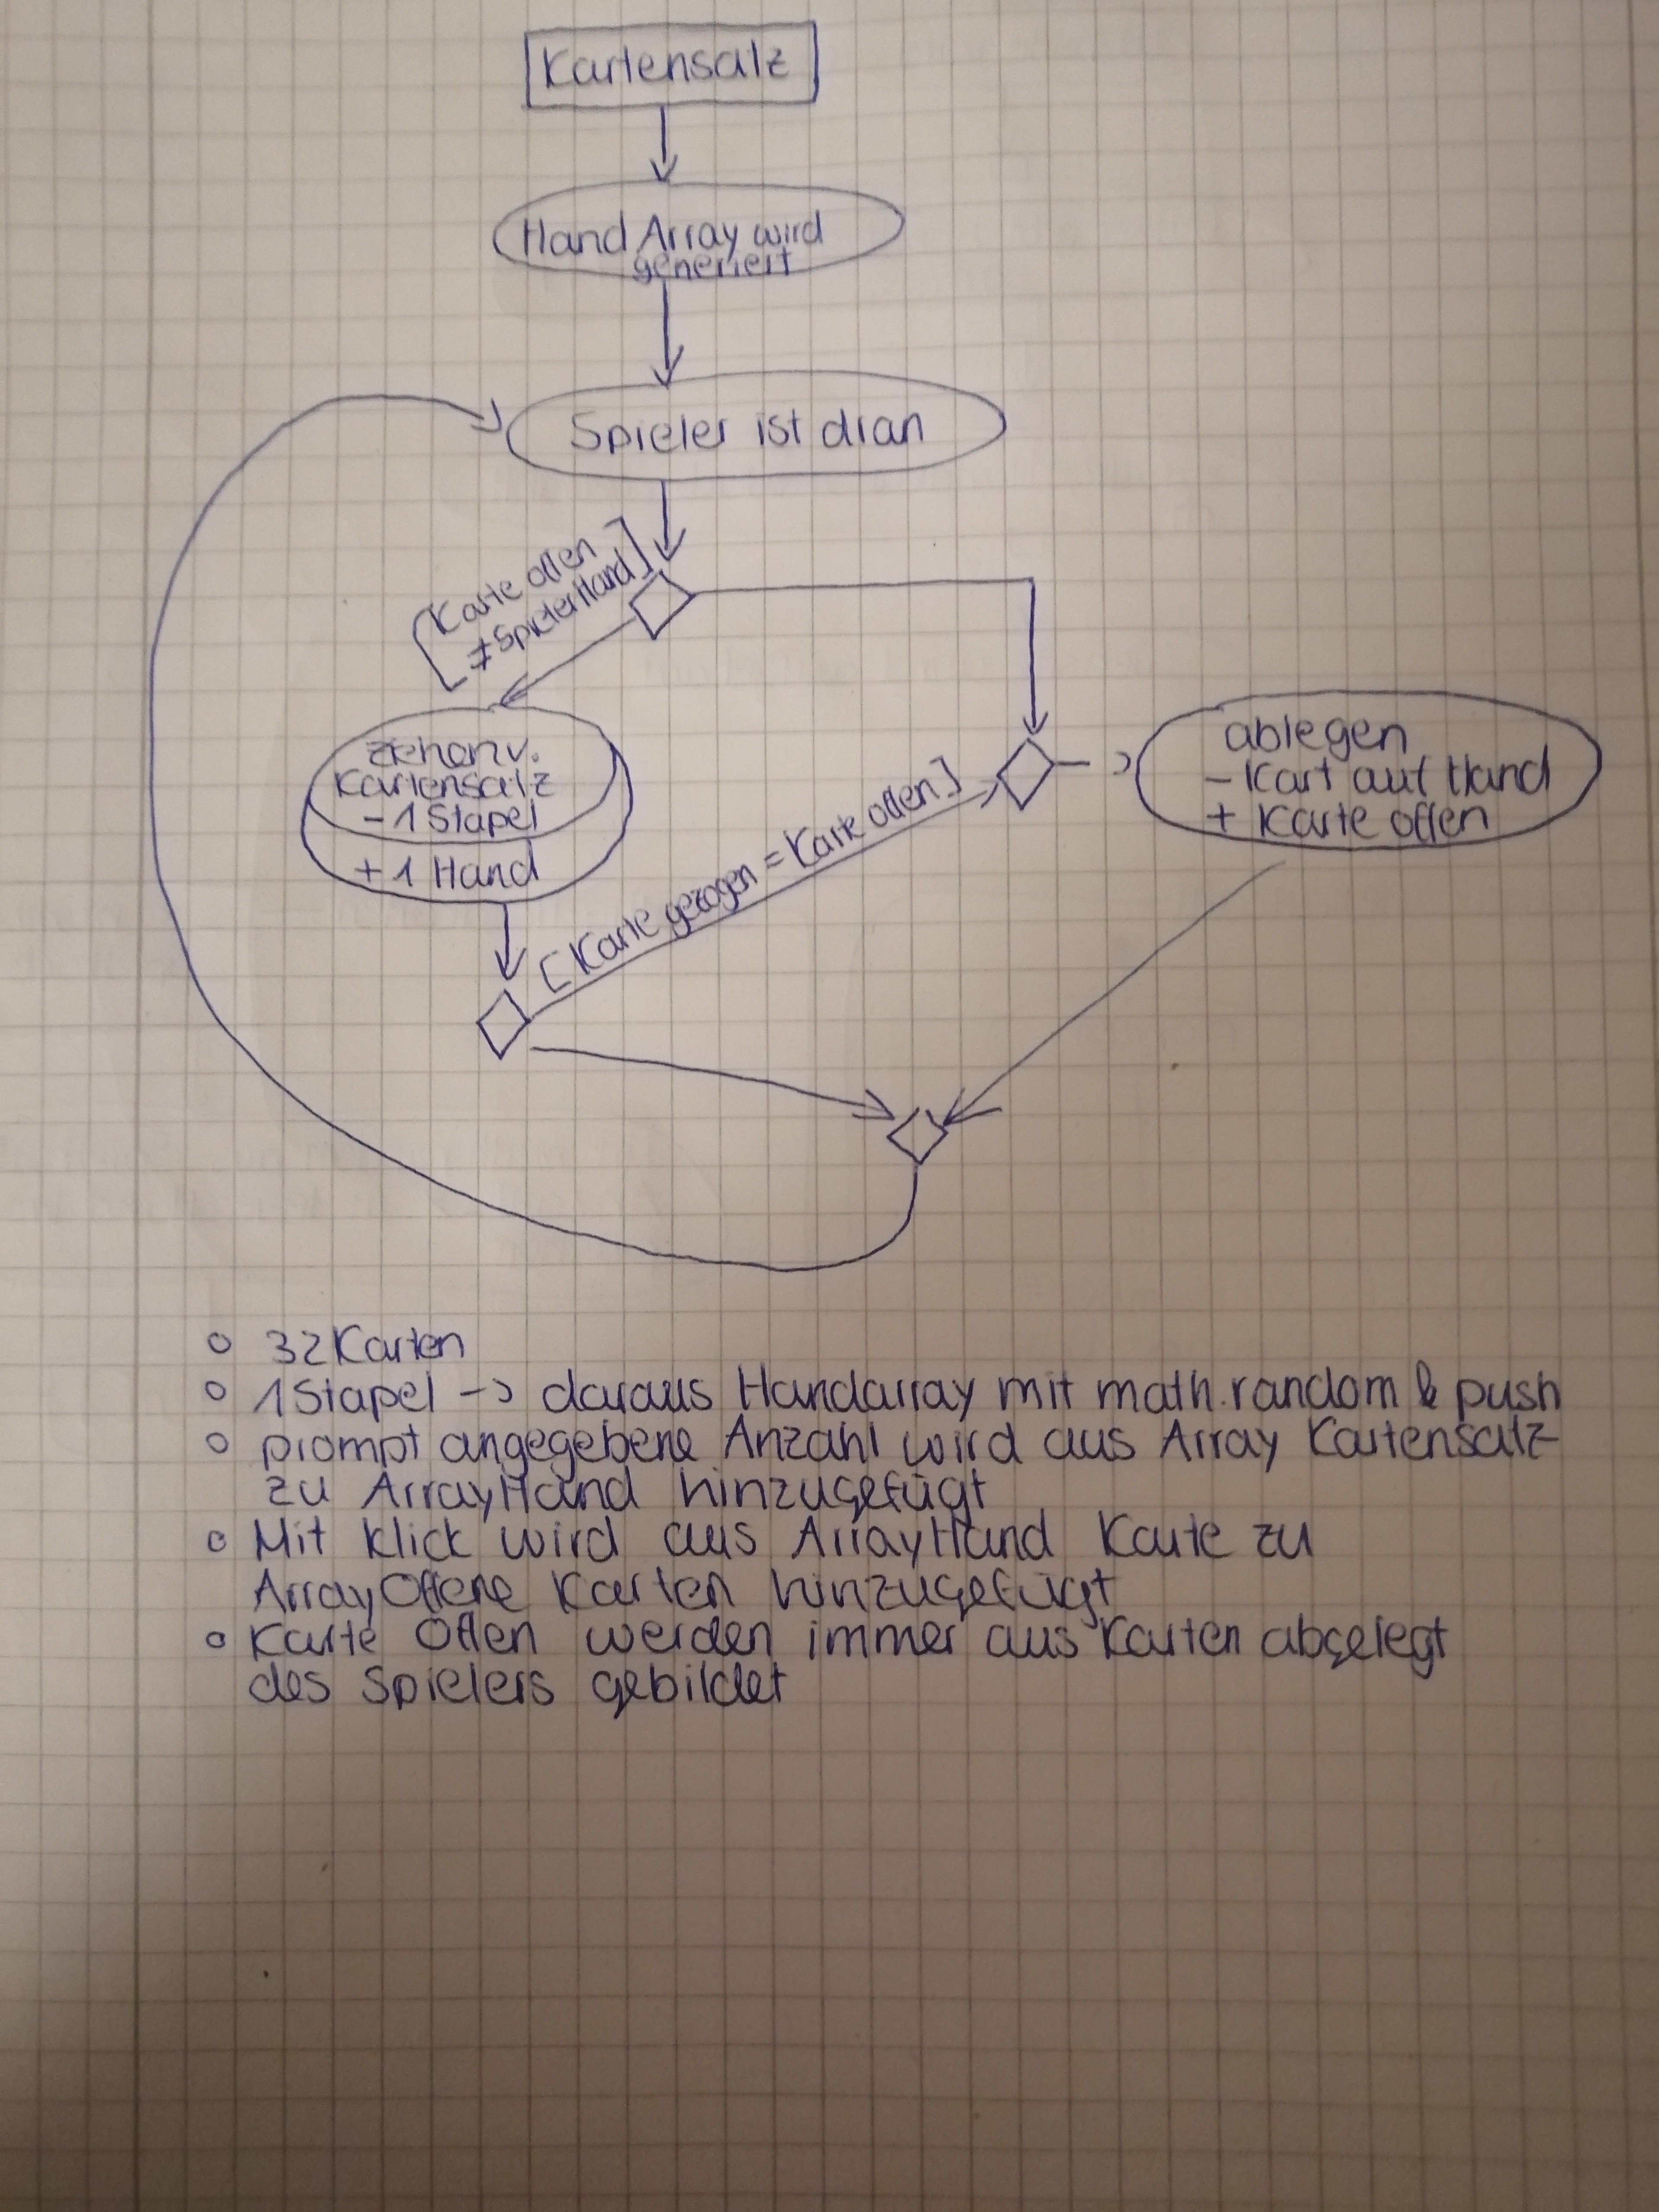 Kartensatz
Hand Array wird
generiert
Spieler ist dran
[Karte offen
≠ SpielerHand]
ziehen v.
Kartensatz
- 1 Stapel
+ 1 Hand
ablegen
- Kart auf Hand
+ Karte offen
[Karte gezogen = Karte offen]
o 32 Karten
o 1 Stapel -> daraus Handarray mit math.random & push
o prompt angegebene Anzahl wird aus Array Kartensatz
zu ArrayHand hinzugefügt
o Mit Klick wird aus ArrayHand Karte zu
ArrayOffene Karten hinzugefügt
o Karte Offen werden immer aus Karten abgelegt
des Spielers gebildet